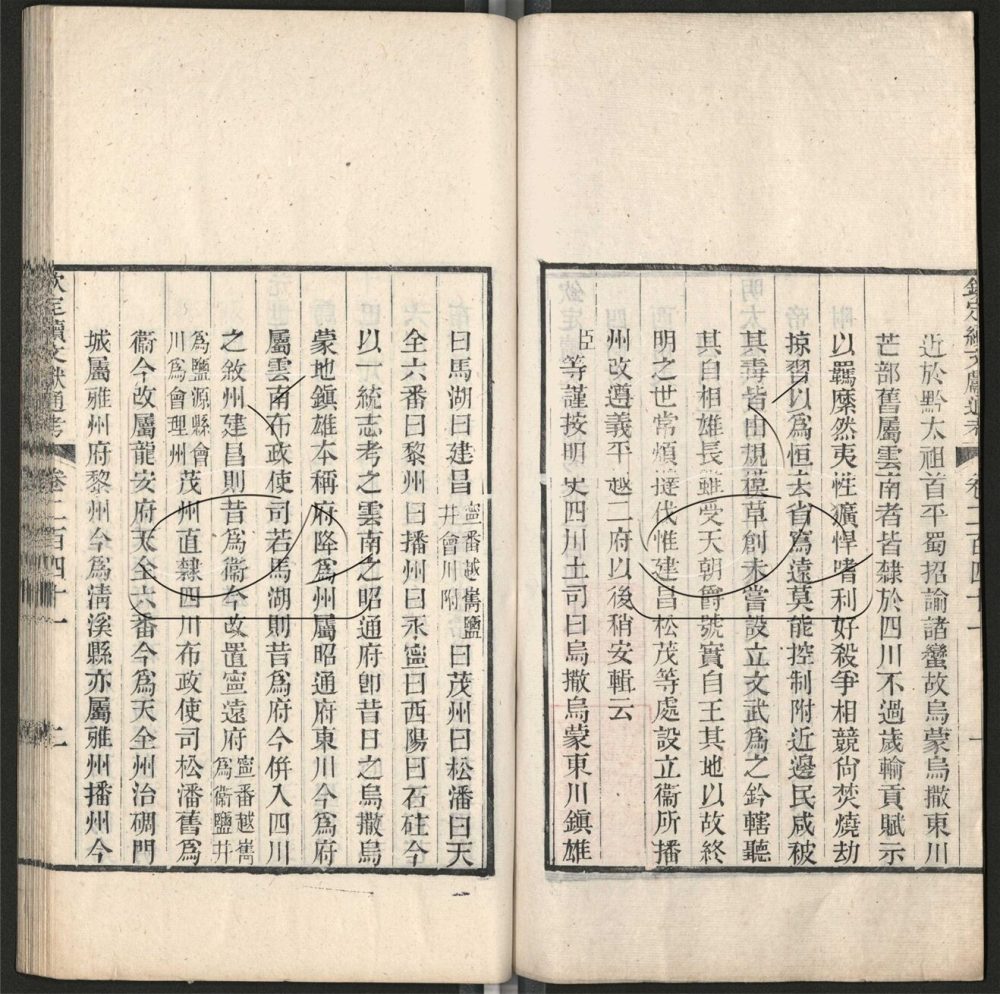 欽定續文獻通考 卷二百四十一 一
近於黔太祖首平蜀招諭諸蠻故烏蒙烏撒東川
芒部舊屬雲南者皆隸於四川不過歲輸貢賦示
以羈縻然夷性獷悍嗜利好殺爭相競尙焚燒劫
掠習以爲恒去省窵遠莫能控制附近邊民咸被
其毒皆由規模草創未嘗設立文武爲之鈐轄聽
其自相雄長雖受天朝爵號實自王其地以故終
明之世常煩撻伐惟建昌松茂等處設立衞所播
州改遵義平越二府以後稍安輯云
臣等謹按明史四川土司曰烏撒烏蒙東川鎭雄
曰馬湖曰建昌寧番越嶲鹽井會川附曰茂州曰松潘曰天
全六番曰黎州曰播州曰永寧曰酉陽曰石砫今
以一統志考之雲南之昭通府卽昔日之烏撒烏
蒙地鎭雄本稱府降爲州屬昭通府東川今爲府
屬雲南布政使司若馬湖則昔爲府今併入四川
之敘州建昌則昔爲衞今改置寧遠府寧番越嶲爲衞鹽井
爲鹽源縣會川爲會理州茂州直隸四川布政使司松潘舊爲
衞今改屬龍安府天全六番今爲天全州治碉門
城屬雅州府黎州今爲淸溪縣亦屬雅州播州今
欽定續文獻通考 卷二百四十一 二